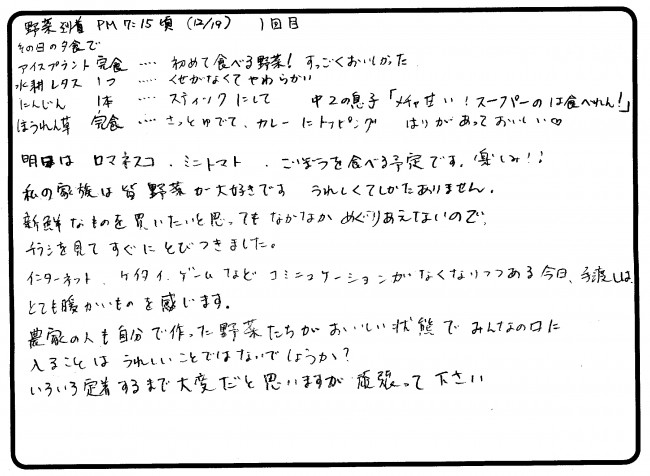 野菜到着 PM 7:15頃 (12/19) 1回目
その日の夕食で
アイスプラント 完食 ‥‥ 初めて食べる野菜! すっごくおいしかった
水耕レタス 1つ ‥‥ くせがなくてやわらかい
にんじん 1本 ‥‥ スティックにして 中2の息子「メチャ甘い!スーパーのは食べれん!」
ほうれん草 完食 ‥‥ さっとゆでて、カレーにトッピング はりがあっておいしい♡
明日は ロマネスコ、ミニトマト、ごぼうを食べる予定です。楽しみ!!
私の家族は皆野菜が大好きです うれしくてしかたありません。
新鮮なものを買いたいと思ってもなかなかめぐりあえないので、
チラシを見てすぐにとびつきました。
インターネット、ケイタイ、ゲームなどコミニュケーションがなくなりつつある今日、手渡しは、
とても暖かいものを感じます。
農家の人も自分で作った野菜たちがおいしい状態でみんなの口に
入ることはうれしいことではないでしょうか?
いろいろ定着するまで大変だと思いますが 頑張って下さい